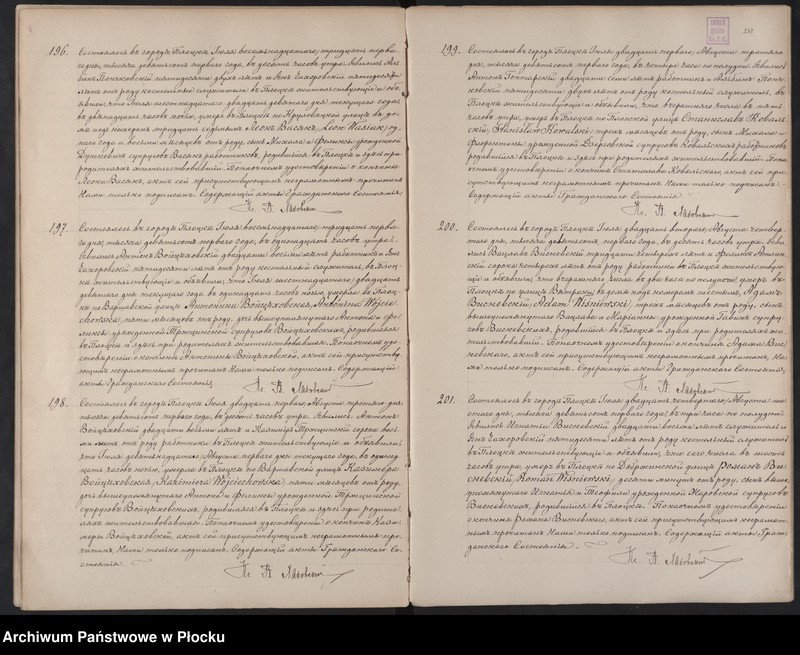 196. Состоялось въ городѣ Плоцкѣ Іюля восемнадцатаго /: тридцать перва-
го дня, тысяча девятьсотъ перваго года, въ десять часовъ утра. Явились
пятидесяти двухъ лѣтъ и Янъ Захоровскій пятидесяти
лѣтъ отъ роду костельный служитель въ Плоцкѣ жительствующіе и объ-
явили, что Іюля шестнадцатаго /: двадцать девятаго дня текущаго года
въ двѣнадцать часовъ ночью, умеръ въ Плоцкѣ по улицѣ въ до-
мѣ подъ номеромъ тридцать седьмымъ Леонъ Васякъ /: Leon Wasiak :/ од-
наго года и восьми мѣсяцевъ отъ роду, сынъ Михала и Фелиціи урожденной
супруговъ Васякъ работниковъ, родившійся въ Плоцкѣ и здѣсь при
родителяхъ жительствовавшій. По наочномъ удостовѣреніи о кончинѣ
Леона Васяка, актъ сей присутствующимъ неграмотнымъ прочитанъ
Нами только подписанъ. Содержащій акты Гражданскаго Состоянія:
Кс. А.
197. Состоялось въ городѣ Плоцкѣ Іюля восемнадцатаго /: тридцать перва-
го дня, тысяча девятьсотъ перваго года, въ одиннадцать часовъ утра.
Явились Антонъ Войцѣховскій двадцати восьми лѣтъ работникъ и Янъ
Захоровскій пятидесяти лѣтъ отъ роду костельный служитель, въ Плоц-
кѣ жительствующіе и объявили, что Іюля шестнадцатаго /: двадцать
девятаго дня текущаго года въ двѣнадцать часовъ ночью умерла въ Плоц-
кѣ по Варшавской улицѣ Антонина Войцѣховская /: Antonina Wojcie-
chowska, пяти мѣсяцевъ отъ роду, дочь вышеупомянутаго Антона и Фе-
ликсы урожденной Тржцинской супруговъ Войцѣховскихъ, родившаяся
въ Плоцкѣ и здѣсь при родителяхъ жительствовавшая. По наочномъ удо-
стовѣреніи о кончинѣ Антонины Войцѣховской, актъ сей присутству-
ющимъ неграмотнымъ прочитанъ Нами только подписанъ. Содержащій
акты Гражданскаго Состоянія:
Кс. А.
198. Состоялось въ городѣ Плоцкѣ Іюля двадцать перваго /: Августа третьяго дня,
тысяча девятьсотъ перваго года, въ десять часовъ утра. Явились Антонъ
Войцѣховскій двадцати восьми лѣтъ и Казиміръ Тржцинскій сорока вось-
ми лѣтъ отъ роду работники въ Плоцкѣ жительствующіе и объявили,
что Іюля девятнадцатаго /: Августа перваго дня текущаго года, въ одиннад-
цать часовъ ночью, умерла въ Плоцкѣ по Варшавской улицѣ Казимера
Войцѣховская, Kazimiera Wojciechowska, пяти мѣсяцевъ отъ роду,
дочь вышеупомянутаго Антона и Феликсы урожденной Тржцинской
супруговъ Войцѣховскихъ, родившаяся въ Плоцкѣ и здѣсь при родите-
ляхъ жительствовавшая. По наочномъ удостовѣреніи о кончинѣ Кази-
меры Войцѣховской, актъ сей присутствующимъ неграмотнымъ про-
читанъ, Нами только подписанъ. Содержащій акты Гражданскаго Со-
стоянія.
Кс. А.
199. Состоялось въ городѣ Плоцкѣ Іюля двадцать перваго /: Августа третьяго
дня, тысяча девятьсотъ перваго года, въ четыре часа по полудни. Явились
Антонъ двадцати семи лѣтъ работникъ и
пятидесяти двухъ лѣтъ отъ роду костельный служитель, въ
Плоцкѣ жительствующіе и объявили, что вчерашняго числа въ пять
часовъ утра, умеръ въ Плоцкѣ по улицѣ Станиславъ Коваль-
скій, Stanisław Kowalski, трехъ мѣсяцевъ отъ роду, сынъ Михала и
Флорентины урожденной супруговъ Ковальскихъ работниковъ
родившійся въ Плоцкѣ и здѣсь при родителяхъ жительствовавшій. По на-
очномъ удостовѣреніи о кончинѣ Станислава Ковальскаго, актъ сей при-
сутствующимъ неграмотнымъ прочитанъ Нами только подписанъ.
Содержащій акты Гражданскаго Состоянія
Кс. А.
200. Состоялось въ городѣ Плоцкѣ Іюля двадцать втораго /: Августа четвер-
таго дня, тысяча девятьсотъ перваго года, въ десять часовъ утра. Яви-
лись Вацлавъ Висневскій тридцати четырехъ лѣтъ и Феликсъ
сорока четырехъ лѣтъ отъ роду работники въ Плоцкѣ жительствую-
щіе и объявили, что вчерашняго числа въ два часа по полуночи, умеръ въ
Плоцкѣ по улицѣ въ домѣ подъ номеромъ шестымъ, Адамъ
Висневскій, Adam Wiśniewski, трехъ мѣсяцевъ отъ роду, сынъ
вышеупомянутаго Вацлава и Маріанны урожденной супру-
говъ Висневскихъ, родившійся въ Плоцкѣ и здѣсь при родителяхъ жи-
тельствовавшій. По наочномъ удостовѣреніи о кончинѣ Адама Вис-
невскаго, актъ сей присутствующимъ неграмотнымъ прочитанъ, На-
ми только подписанъ. Содержащій акты Гражданскаго Состоянія:
Кс. А.
201. Состоялось въ городѣ Плоцкѣ Іюля двадцать четвертаго /: Августа ше-
стаго дня, тысяча девятьсотъ перваго года, въ три часа по полудни.
Явились Игнатій Висневскій двадцати восьми лѣтъ служитель и
Янъ Захоровскій пятидесяти лѣтъ отъ роду костельный служитель
въ Плоцкѣ жительствующіе и объявили, что сего числа въ шесть
часовъ утра, умеръ въ Плоцкѣ по Добржинской улицѣ Романъ Вис-
невскій, Roman Wiśniewski, десяти минутъ отъ роду, сынъ выше-
упомянутаго Игнатія и Теофили урожденной супруговъ
Висневскихъ, родившійся въ Плоцкѣ. По наочномъ удостовѣреніи
о кончинѣ Романа Висневскаго, актъ сей присутствующимъ неграмот-
нымъ прочитанъ Нами только подписанъ. Содержащій акты Граж-
данскаго Состоянія.
Кс. А.
Archiwum Państwowe w Płocku